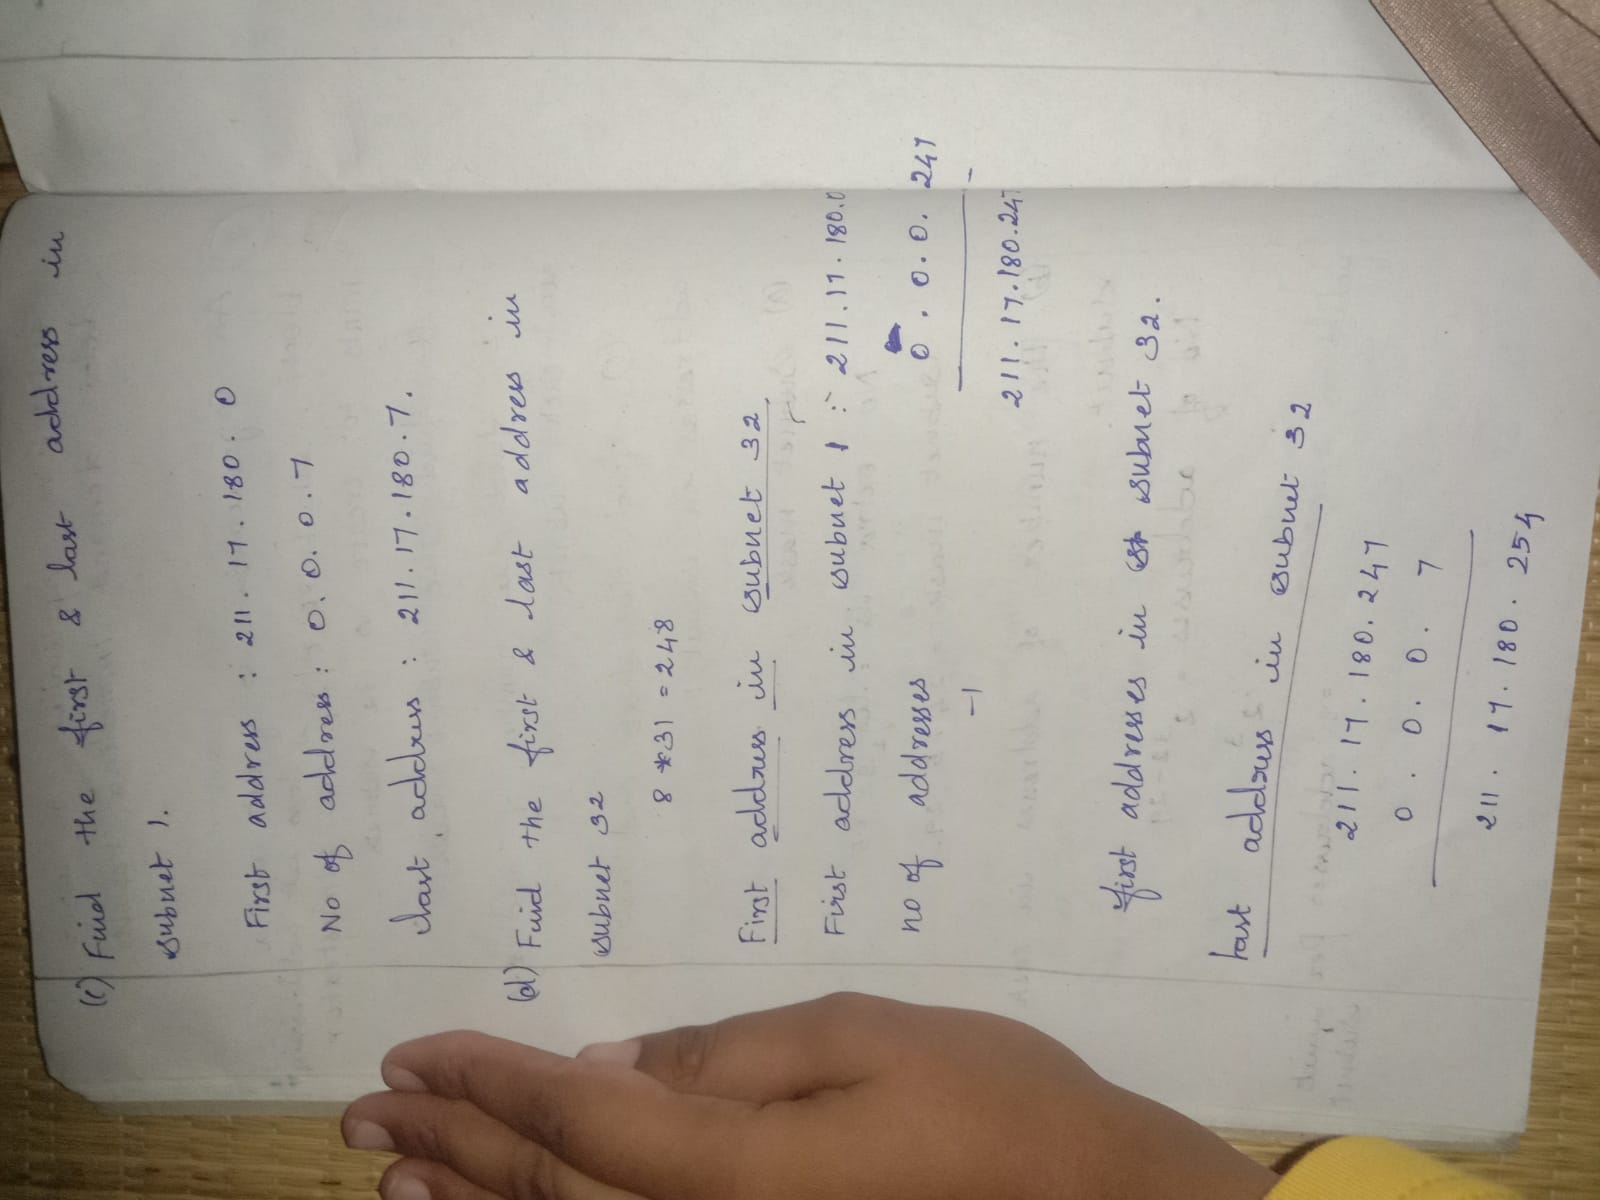 (c) Find the first & last address in
subnet 1.
First address : 211. 17. 180. 0
No of address : 0. 0. 0. 7
last address : 211. 17. 180. 7.
(d) Find the first & last address in
subnet 32
8 * 31 = 248
First address in subnet 32
First address in subnet 1 :- 211. 17. 180. 0
no of addresses 0 . 0. 0. 247
-1
211. 17. 180. 247
first addresses in subnet 32.
last address in subnet 32
211. 17. 180. 247
0 . 0. 0. 7
211. 17. 180. 254